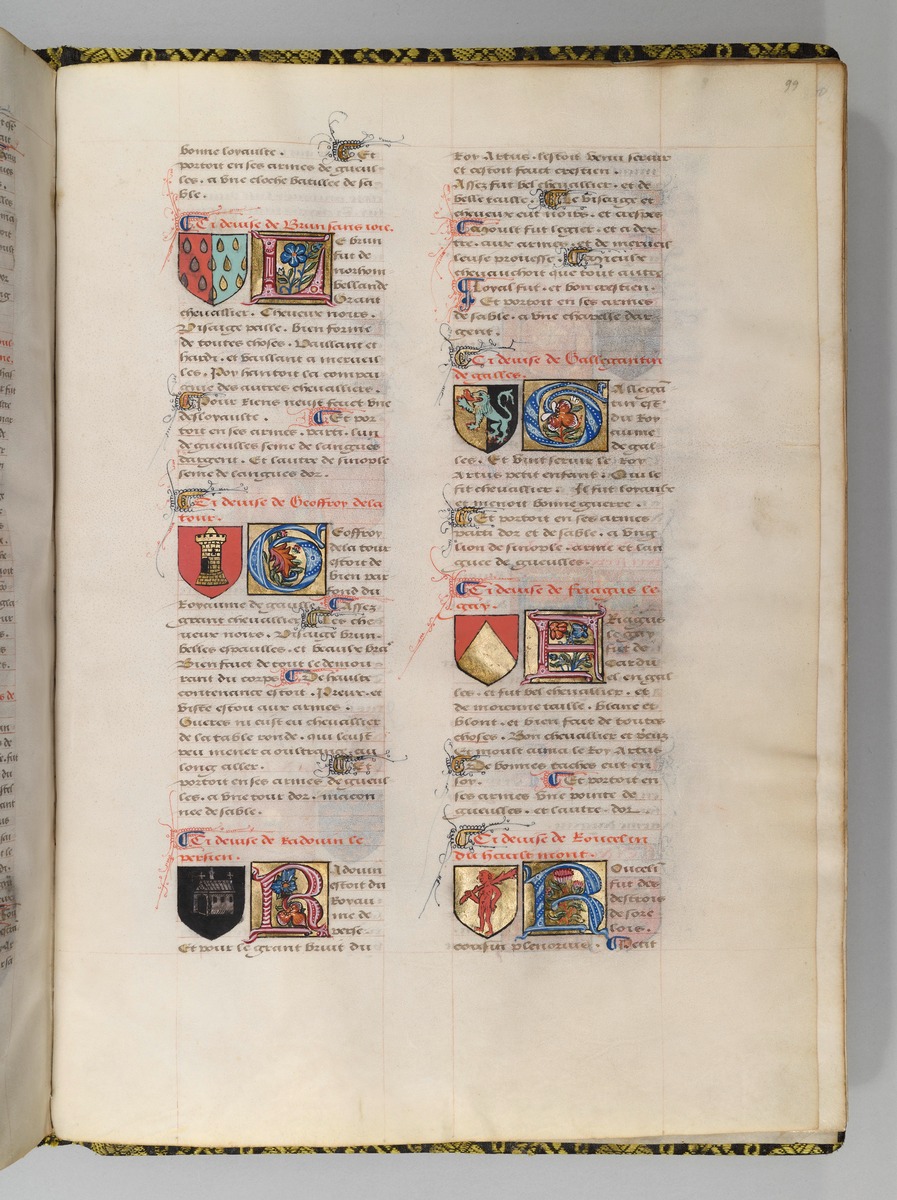 99
bonne loyaulte. Et
portoit en ses armes de gueul
les. a vne cloche bataillee de sa
ble.
Ci deuise de Brun sans ioie.
Le brun
fut de
norhom
bellande
Grant
cheuallier. Cheueux noirs.
Visaige palle. bien forme
de toutes choses. Vaillant et
hardi. et vaillant a merueil
les. Poy hantoit la compai
gnie des autres cheualliers.
Pour riens neust fait vne
desloyaulte. Et por
toit en ses armes. parti. lun
de gueulles seme de langues
dargent. Et lautre de sinople
seme de langues dor.
Ci deuise de Geoffroy dela
tour.
Geoffroy
dela tour
estoit de
bien par
fond du
Royaume de gaulle. Assez
grant cheuallier. Les che
ueux noirs. Visaige brun
belles espaulles. et beaulx bra
Bien faict de tout le demou
rant du corps. De haulte
contenance estoit. Preux. et
viste estoit aux armes.
Gueres ni eust eu cheuallier
de la table ronde. qui leust
peu mener a oultrance. au
long aller. Et
portoit en ses armes de gueul
les. a vne tour dor. macon
nee de sable.
Ci deuise de Radouin le
persien.
Radouin
estoit du
Royau
me de
perse.
Et pour le grant bruit du
Roy Artus. lestoit venu seruir
et cestoit faict crestien.
Assez fut bel cheuallier. et de
belle taille. Le visaige et
cheueux eut noirs. et crespes
Et moult fut legier. et a dex
tre. aux armes. et de merueil
leuse prouesse. Et mieulx
cheuauchoit que tout autre
Loyal fut. et bon crestien.
Et portoit en ses armes
de sable. a vne chapelle dar
gent.
Ci deuise de Gallegantin
de galles.
Gallega
tin est
du Roy
aume
de gal
les. Et vint seruir le Roy
Artus petit enfant. Qui le
fit cheuallier. Il fut loyaulx
et menoit bonne guerre.
Et portoit en ses armes
parti dor et de sable. a vng
lion de sinople. arme et lan
gue de gueulles.
Ci deuise de Friagus le
gay.
Friagus
le gay
fut de
Cardu
el en gal
les. et fut bel cheuallier. et
de moienne taille. blanc et
blont. et bien fait de toutes
choses. Bon cheuallier et preux
Et moult aima le Roy Artus
De bonnes taches eut en
soy. Et portoit en
ses armes vne pointe de
gueulles. et lautre. dor.
Ci deuise de Roucelin
du hault mont.
Roucelin
fut des
destrois
de sore
lois.
cousin plenorius. Petit